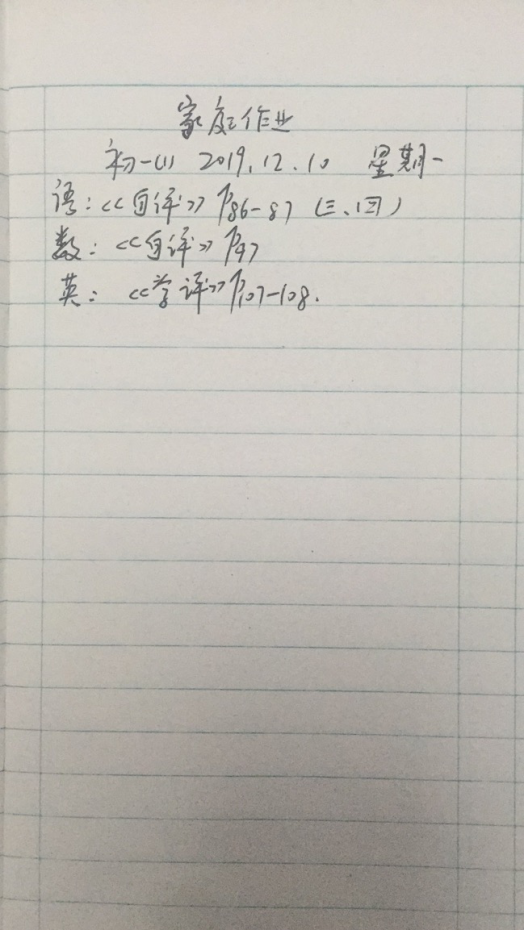 家庭作业
初一(1) 2019.12.10 星期一
语:<<自评>> P86-87 (三、四)
数:<<自评>> P47
英:<<学评>> P107-108.